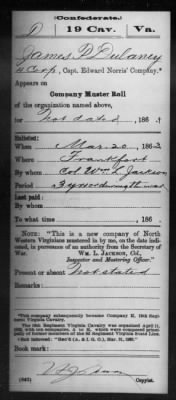 (Confederate.)
D 19 Cav. Va.
James D Dulaney
4 Corp, Capt. Edward Norris' Company.*
Appears on
Company Muster Roll
of the organization named above,
for Not dated, 186 .
Enlisted:
When Mar. 20, 1863
Where Frankfort
By whom Col Wm L Jackson
Period 3 years or during the war
Last paid:
By whom
To what time , 186 .
NOTE: "This is a new company of North Western Virginians mustered in by me, on the date indicated, in pursuance of an authority from the Secretary of War.
WM. L. JACKSON, Col,
Inspector and Mustering Officer."
Present or absent Not stated
Remarks:
*This company subsequently became Company 19th Regiment Virginia Cavalry.
The 19th Regiment Virginia Cavalry was organized April 11, 1863, with ten companies, A to K, which were composed
Book mark:
(642) Copyist.